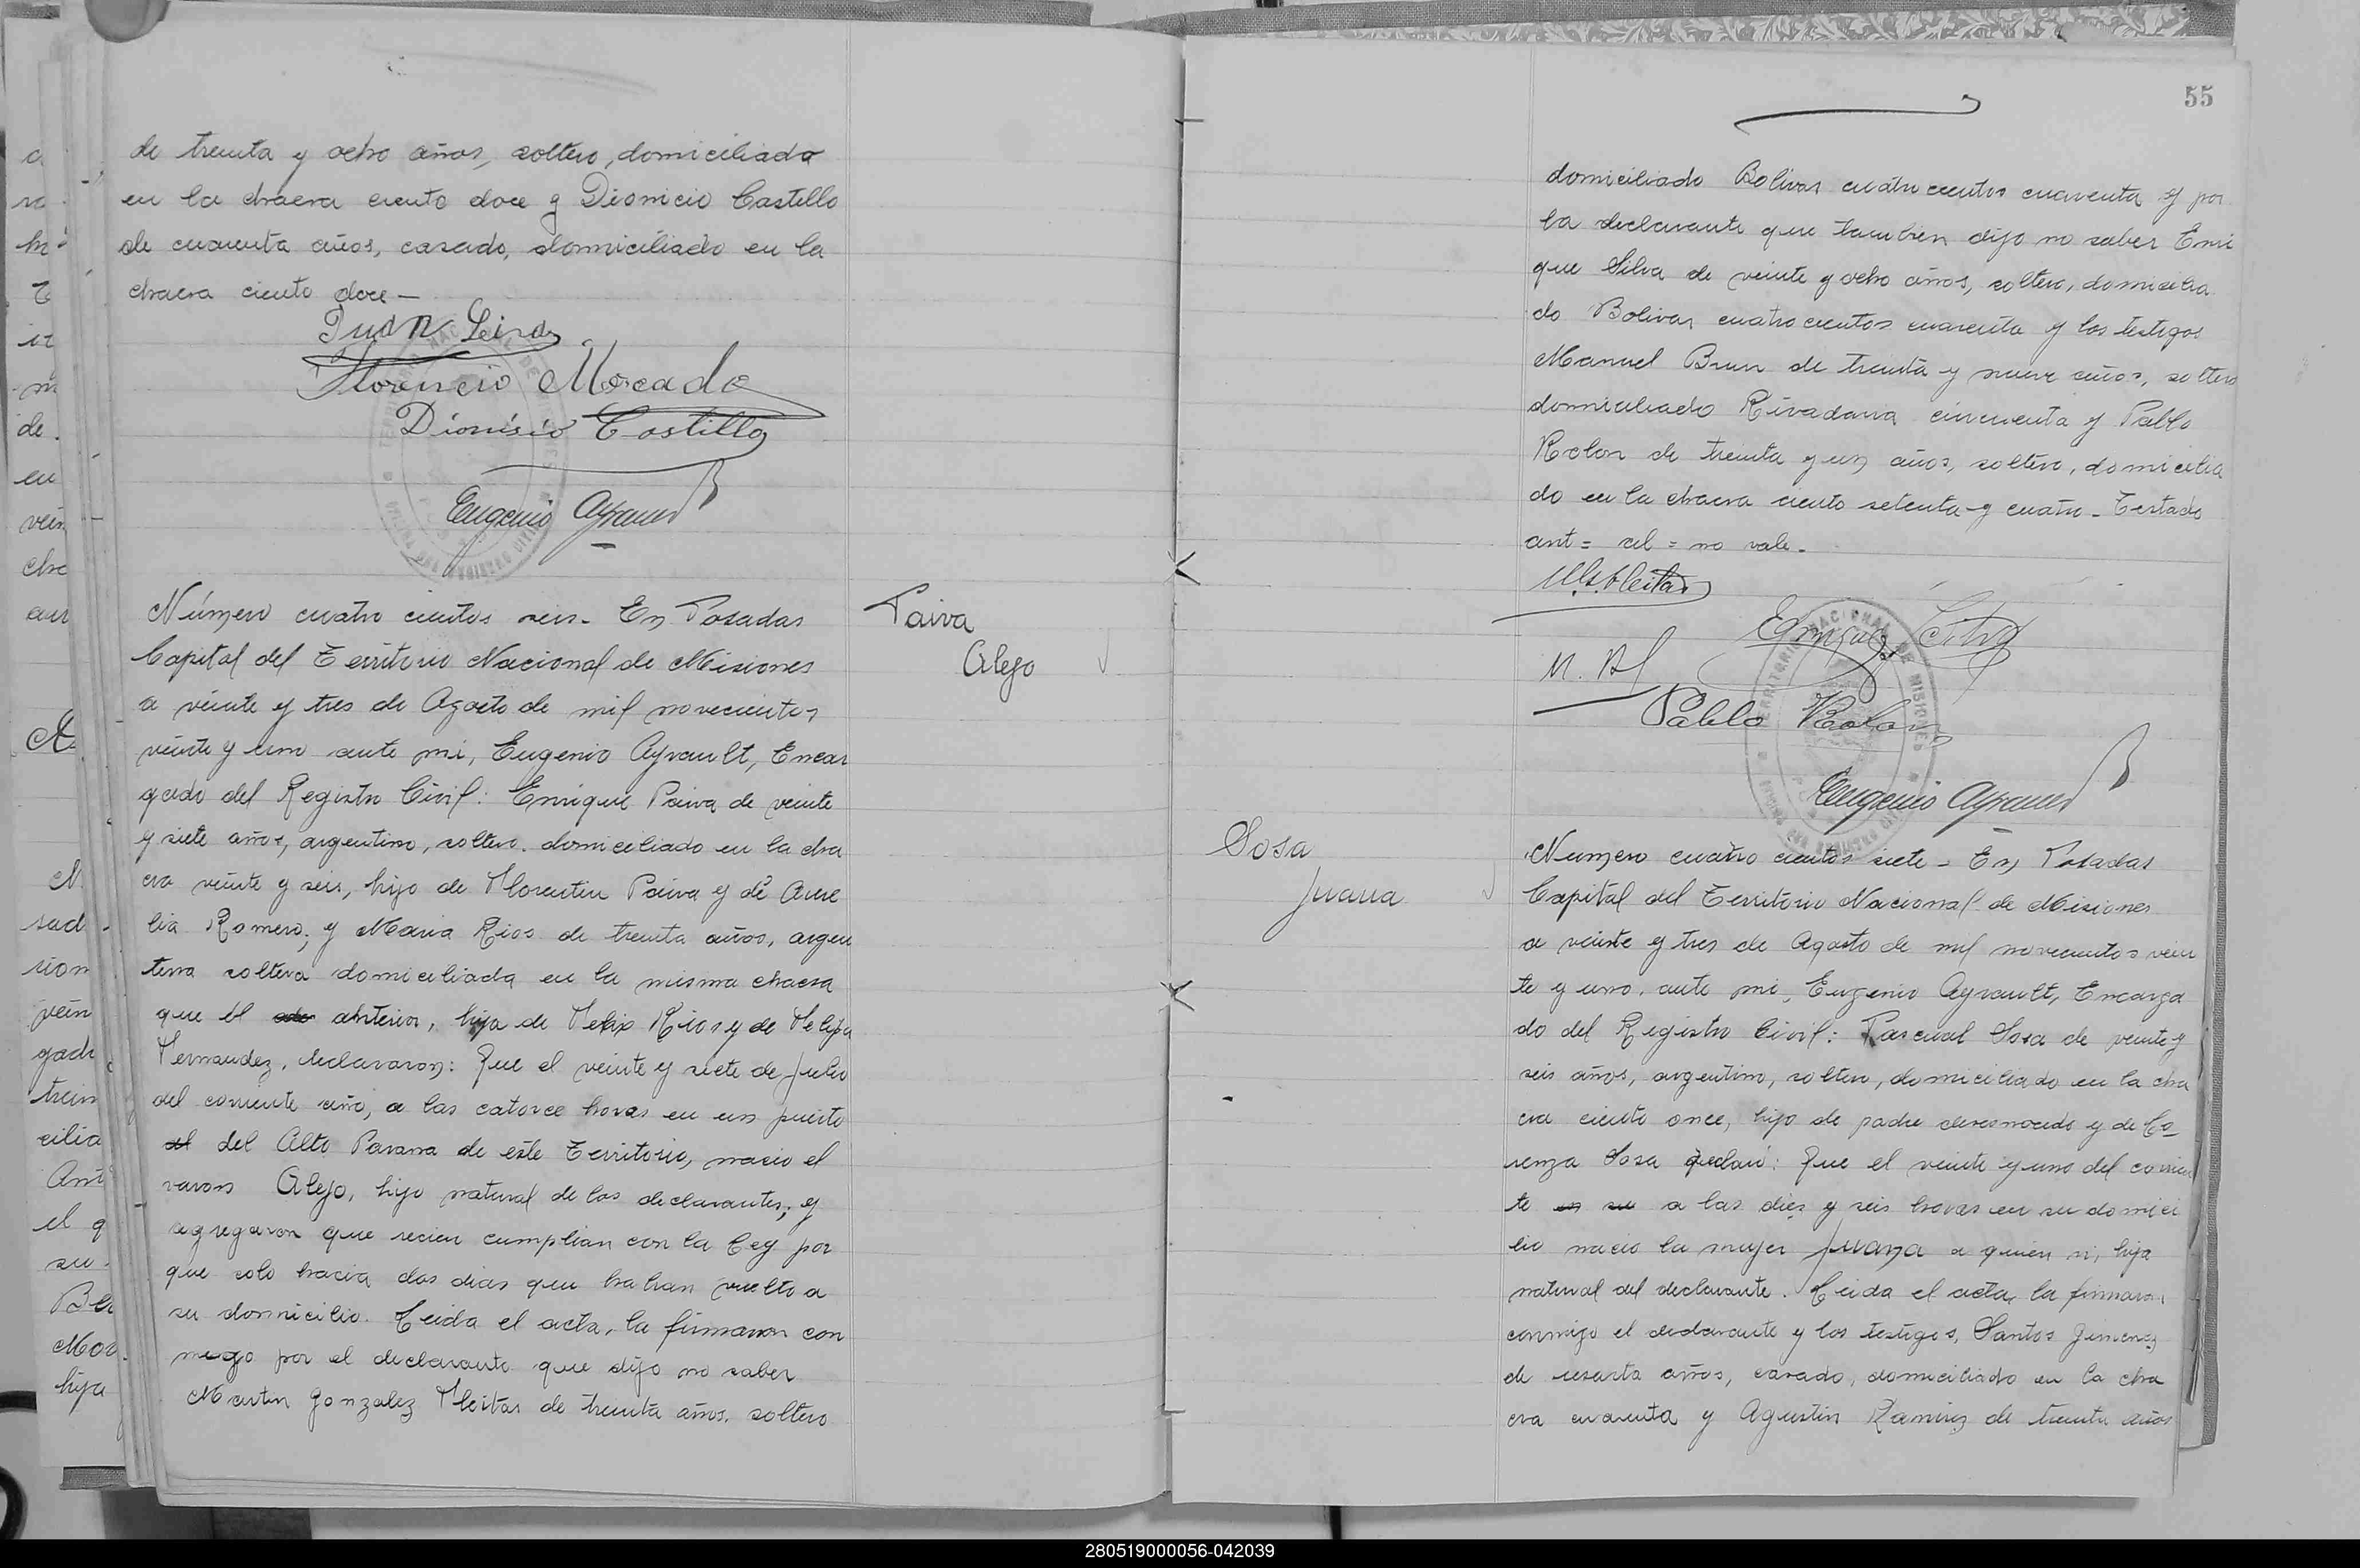 de treinta y ocho años, soltero, domiciliado
en la chacra ciento doce y Dionicio Castillo
de cuarenta años, casado, domiciliado en la
chacra ciento doce —
Florencio Mercado
Dionisio Castillo
Eugenio Ayrault
Número cuatro cientos seis. En Posadas
Capital del Territorio Nacional de Misiones
a veinte y tres de Agosto de mil novecientos
veinte y uno ante mi, Eugenio Ayrault, Encar
gado del Registro Civil: Enrique Paiva de veinte
y siete años, argentino, soltero. domiciliado en la cha
cra veinte y seis, hijo de Florentin Paiva y de Aure
lia Romero; y Maria Rios de treinta años, argen
tina soltera domiciliada en la misma chacra
que el anterior, hija de Felix Rios y de Felipa
Fernandez, declararon: Que el veinte y siete de Julio
del corriente año, a las catorce horas en un puerto
del Alto Parana de este Territorio, nacio el
varon Alejo, hijo natural de los declarantes; y
agregaron que recien cumplian con la Ley por
que solo hacia dos dias que habian vuelto a
su domicilio. Leida el acta, la firmaron con
migo por el declarante que dijo no saber
Martin Gonzalez Fleitas de treinta años, soltero
Paiva
Alejo
55
domiciliado Bolivar cuatrocientos cuarenta y por
la declarante que tambien dijo no saber Enri
que Silva de veinte y ocho años, soltero, domicilia
do Bolivar cuatrocientos cuarenta y los testigos
Manuel Brun de treinta y nueve años, soltero
domiciliado Rivadavia cincuenta y Pablo
Rolon de treinta y un años, soltero, domicilia
do en la chacra ciento setenta y cuatro. Testado
ant = el = no vale.
Enrique Silva
Pablo Rolon
Eugenio Ayrault
Sosa
Juana
Número cuatro cientos siete - En Posadas
Capital del Territorio Nacional de Misiones
a veinte y tres de Agosto de mil novecientos vein
te y uno. ante mi, Eugenio Ayrault, Encarga
do del Registro Civil: Pascual Sosa de veinte y
seis años, argentino, soltero, domiciliado en la cha
cra ciento once, hijo de padre desconocido y de Lo
renza Sosa declaró: Que el veinte y uno del corrien
te en su a las diez y seis horas en su domici
lio nacio la mujer Juana a quien vi, hija
natural del declarante. Leida el acta, la firmaron
conmigo el declarante y los testigos, Santos Jimenez
de sesenta años, casado, domiciliado en la cha
cra cuarenta y Agustin Ramirez de treinta años
280519000056-042039